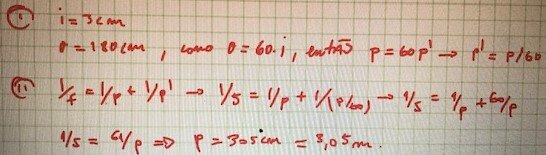 I i = 3 cm
o = 180 cm, como o = 60.i, então p = 60 p' → p' = p/60
II 1/f = 1/p + 1/p' → 1/5 = 1/p + 1/(p/60) → 1/5 = 1/p + 60/p
1/5 = 61/p => p = 305 cm = 3,05 m.